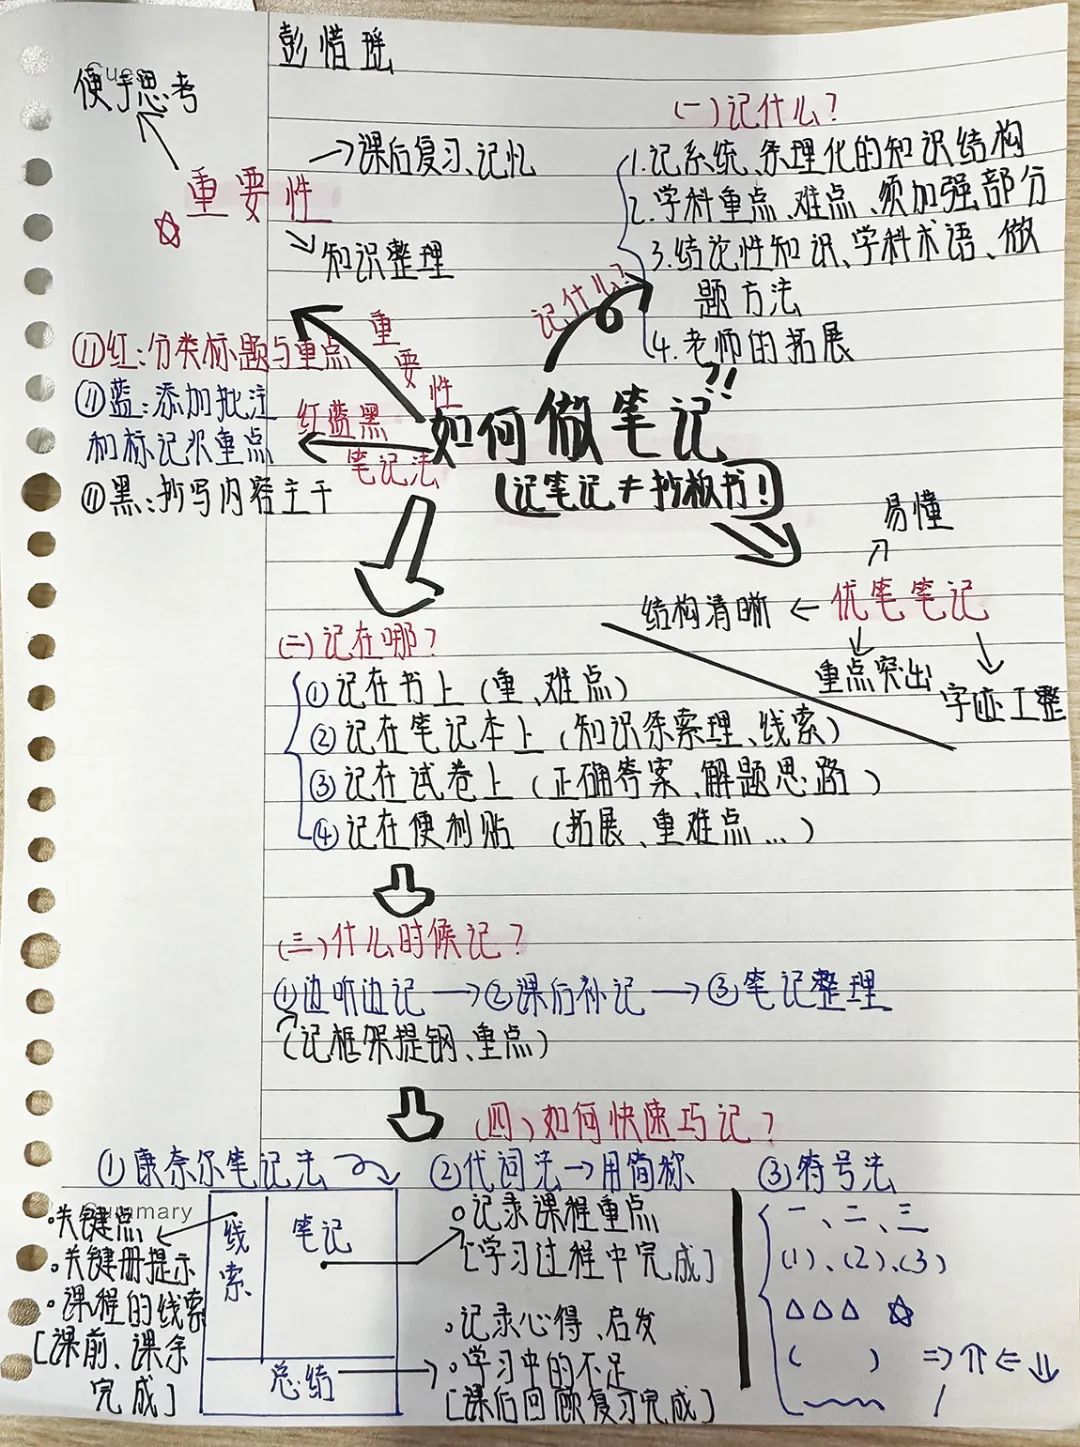 彭惜瑶
Cues
便于思考
重要性
→课后复习、记忆
知识整理
(一)记什么?
1.记系统、条理化的知识结构
2.学科重点、难点、须加强部分
3.结论性知识、学科术语、做
题方法
4.老师的拓展
记什么?
重要性
(1)红:分类标题与重点
(1)蓝:添加批注
和标记次重点
(1)黑:抄写内容主干
红蓝黑
笔记法
如何做笔记?!!
(记笔记≠抄板书!)
易懂
结构清晰 ← 优笔笔记
重点突出
字迹工整
(二)记在哪?
①记在书上(重、难点)
②记在笔记本上(知识条索理、线索)
③记在试卷上(正确答案、解题思路)
④记在便利贴 (拓展、重难点...)
(三)什么时候记?
①边听边记→②课后补记→③笔记整理
(记框架提钢、重点)
(四)如何快速巧记?
①康奈尔笔记法
②代词法→用简称
③符号法
Summary
。关键点
。关键册提示
。课程的线索
[课前、课余
完成]
线索
笔记
总结
。记录课程重点
[学习过程中完成]
。记录心得、启发
。学习中的不足
[课后回顾复习完成]
一、二、三
(1)、(2)、(3)
△△△ ☆
( ) ⇒⇑⇐⇓
﹏﹏ /